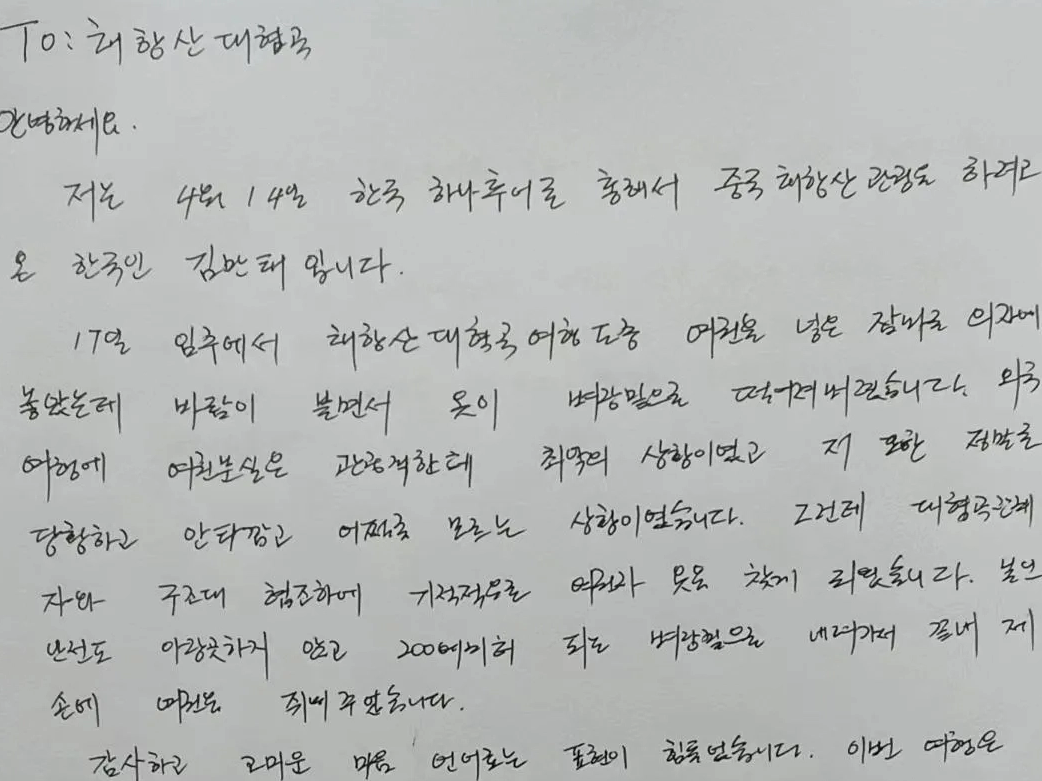 To: 태항산대협곡
안녕하세요.
저는 4월 14일 한국 하나투어를 통해서 중국 태항산 관광을 하려고
온 한국인 김만태 입니다.
17일 임주에서 태항산대협곡 여행 도중 여권을 넣은 잠바를 의자에
놓았는데 바람이 불면서 옷이 벼랑밑으로 떨어져버렸습니다. 외국
여행에 여권분실은 관광객한테 최악의 상황이였고 저 또한 정말로
당황하고 안타깝고 어쩔줄 모르는 상황이였습니다. 그런데 대협곡관계
자와 구조대 협조하에 기적적으로 여권과 옷을 찾게 되였습니다. 본인
안전도 아랑곳하지 않고 200메미터 되는 벼랑밑으로 내려가서 끝내 제
손에 여권을 쥐여주었습니다.
감사하고 고마운 마음 언어로는 표현이 힘들었습니다. 이번 여행은